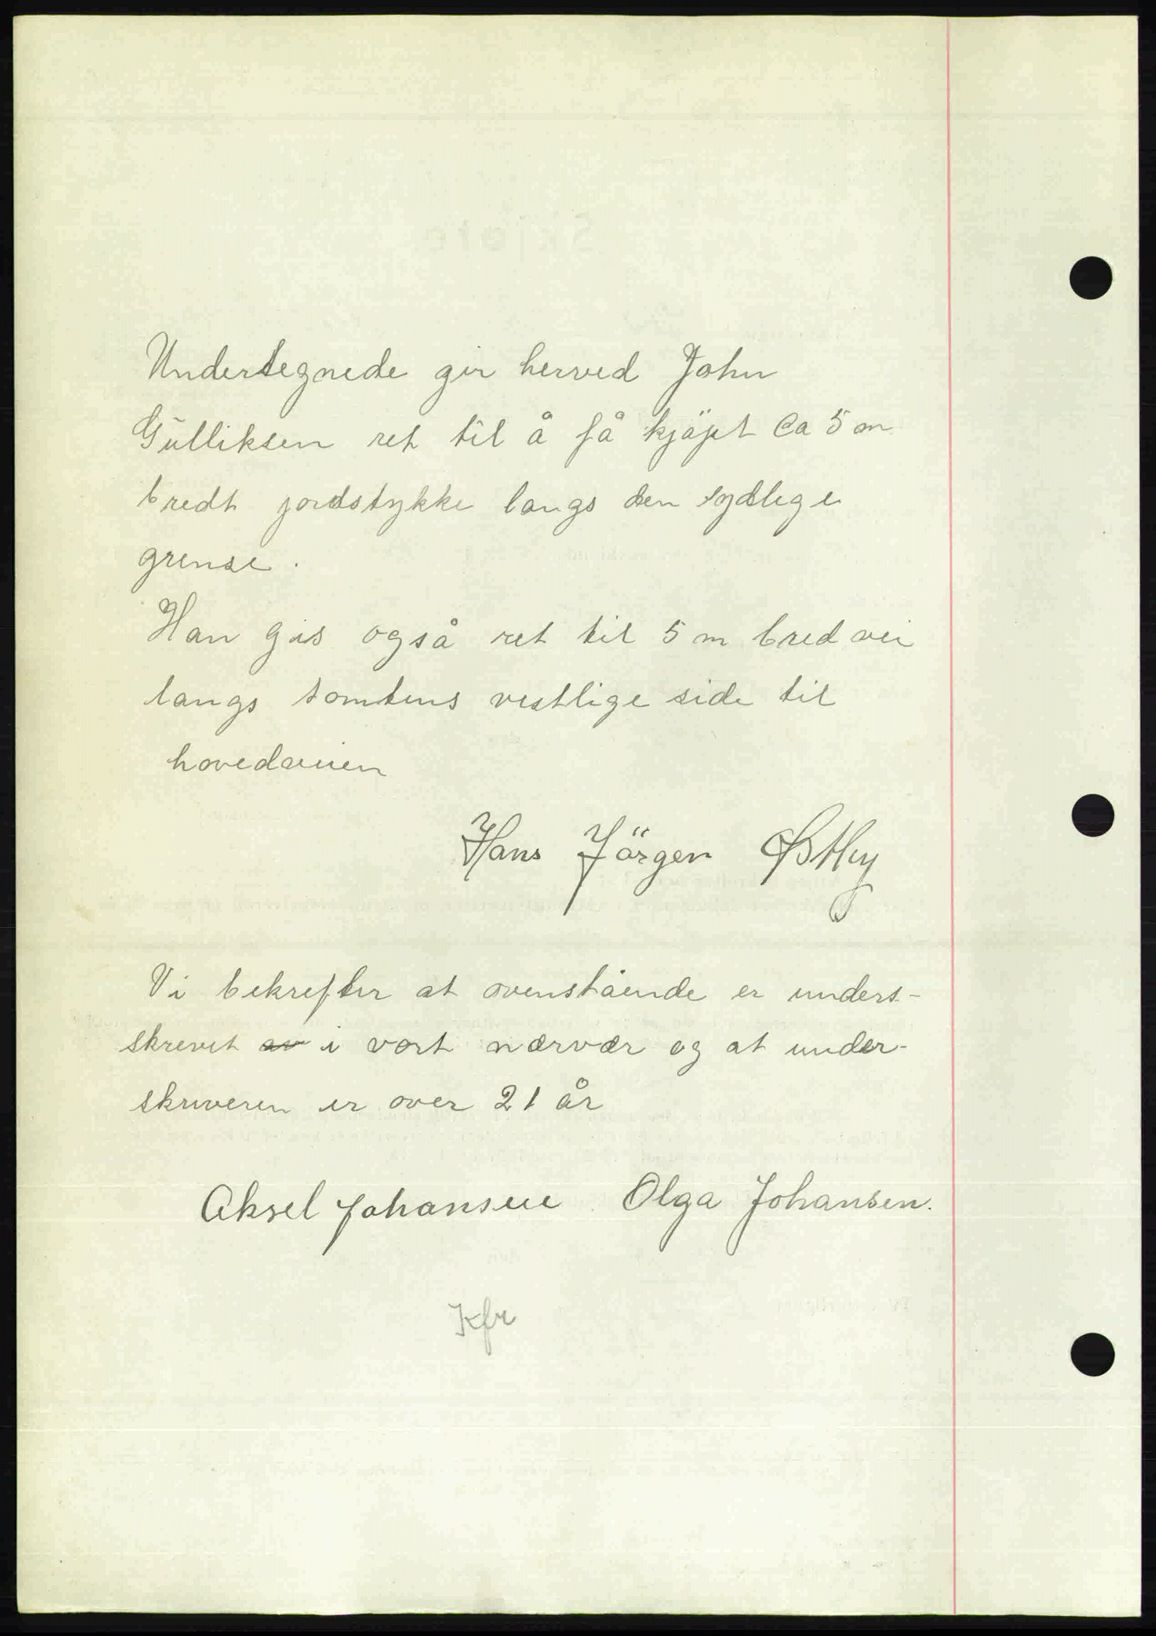 Undertegnede gir herved John
Gulliksen ret til å få kjöpt Ca 5 m
bredt jordstykke langs den sydlige
grense.
Han gis også ret til 5 m bred vei
langs tomtens vestlige side til
hovedveien
Hans Jörgen Østby
Vi bekrefter at ovenstående er unders-
skrevet av i vort nærvær og at under-
skriveren er over 21 år
Aksel Johansen Olga Johansen.
Kfr